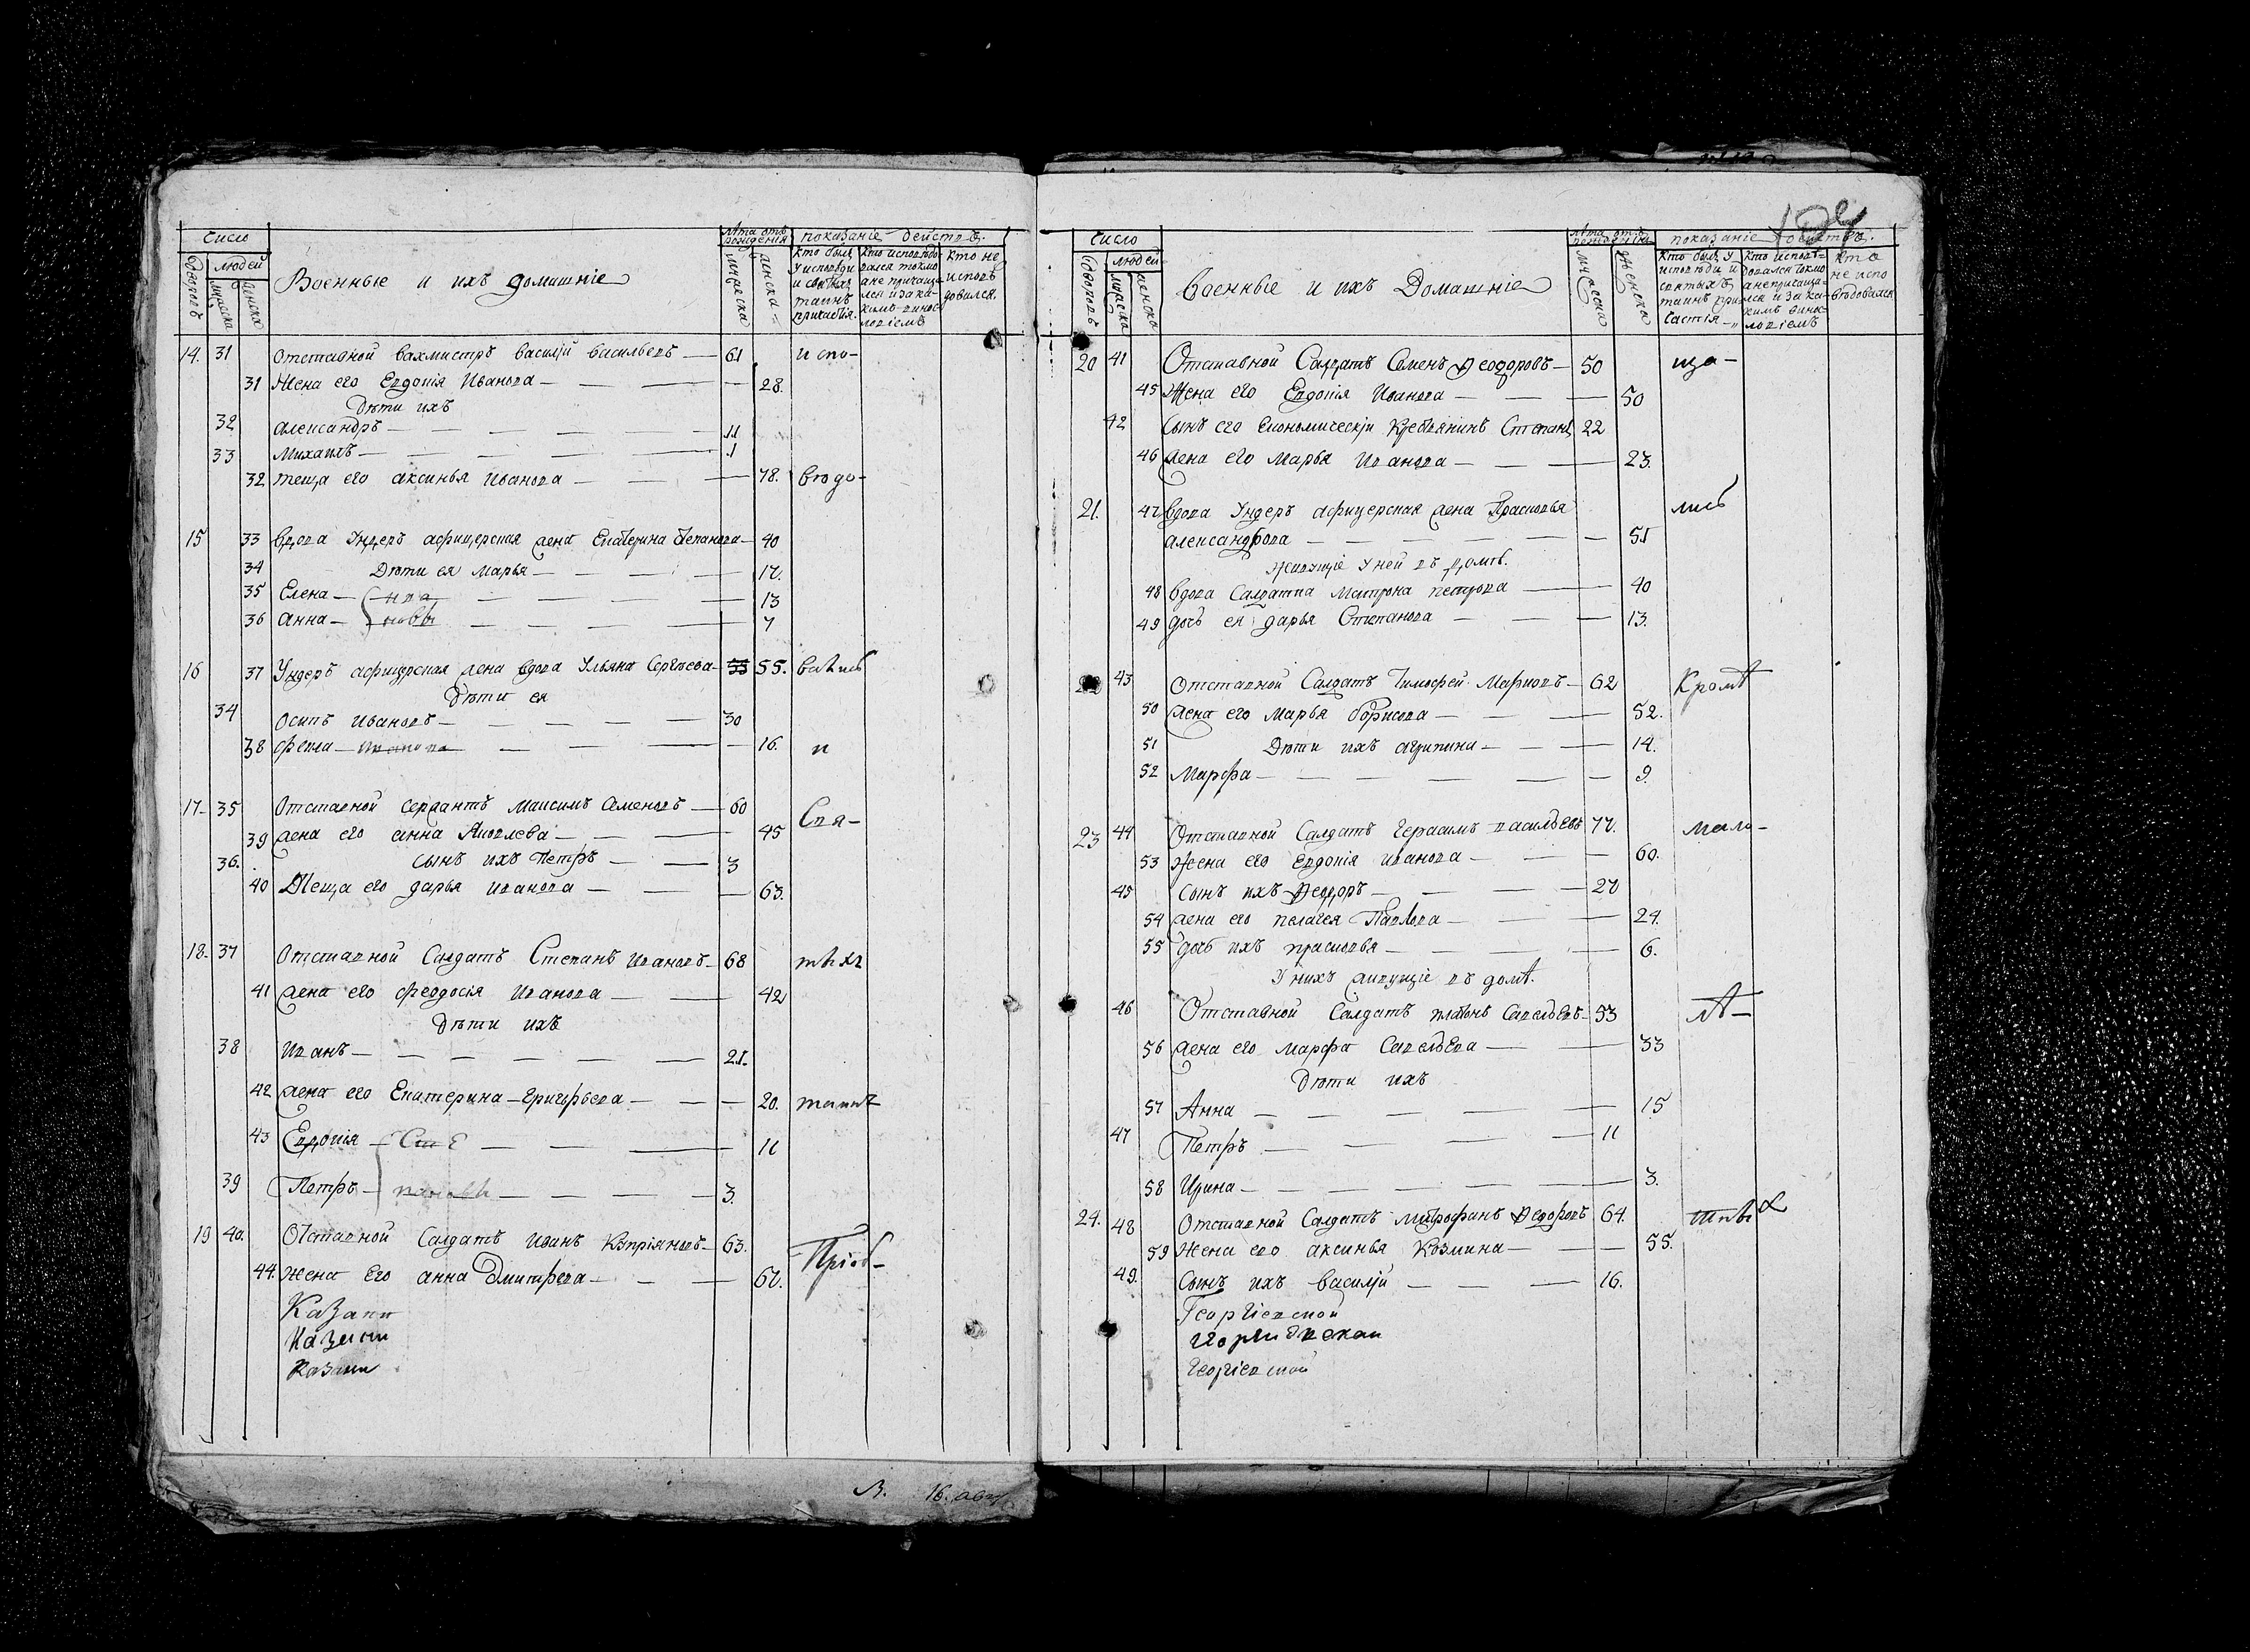 Число
дворовъ
людей
мужеска
женска
Военныѣ и ихъ домашніе
лѣта отъ рожденія
мужеска
женска
показаніе действъ.
кто былъ у исповѣди и святыхъ таинъ причастія.
кто исповѣдовался токмо а не причащался и за какимъ винословіемъ
кто не исповѣдовался.
14. 31 Отставной вахмистръ Василій Васильевъ — 61 испо-
31 Жена его Евдокія Иванова — 28.
Дѣти ихъ
32 Александръ — 11
33 Михаилъ — 1
32 теща его Аксинья Иванова — 78. вѣдо-
15 33 вдова Ундеръ афицерская жена Екатерина Степанова — 40
34 Дѣти ея Марья — 17.
35 Елена — 13
36 Анна — 7
16 37 Ундеръ афицерская жена вдова Ульяна Сергѣева — 55 55. вались
Дѣти ея
34 Осипъ Ивановъ — 30
38 Фекла — Иванова — 16. и
17. 35 Отставной сержантъ Максимъ Семеновъ — 60 Свя-
39 жена его Анна Яковлева — 45
36. сынъ ихъ Петръ — 3
40 Теща его Дарья Иванова — 63.
18. 37 Отставной Салдатъ Степанъ Ивановъ — 68 тыхъ
41 жена его Феодосія Иванова — 42
Дѣти ихъ
38 Иванъ — 21.
42 жена его Екатерина Григорьева — 20. таинъ
43 Евдокія — 11
39 Петръ — 3.
19 40. Отставной Салдатъ Иванъ Купріяновъ — 63. Пріоб-
44. жена его Анна Дмитрева — 67.
Казанн
Казанн
Казанн
16. авг
Число
дворовъ
людей
мужеска
женска
Военныѣ и ихъ Домашніе
лѣта отъ рожденія
мужеска
женска
показаніе действъ.
кто былъ у исповѣди и святыхъ таинъ причастія
кто исповѣдовался токмо а не причащался и за какимъ винословіемъ
кто не исповѣдовался
20 41 Отставной Салдатъ Семенъ Феодоровъ — 50 ща-
45 Жена его Евдокія Иванова — 50
42 Сынъ его Економическій Крестьянинъ Степанъ 22
46 жена его Марья Иванова — 23.
21. 47 вдова Ундеръ афицерская жена Прасковья лись
Александрова — 51
живущіе у ней въ домѣ.
48 вдова Салдатка Матрона Петрова — 40
49 дочь ея Дарья Степанова — 13.
22 43 Отставной Салдатъ Тимофей Марковъ — 62 Кромѣ
50 жена его Марья Борисова — 52.
51 Дѣти ихъ Агрипина — 14.
52 Марфа — 9.
23 44 Отставной Салдатъ Герасимъ Васильевъ 77. мало-
53 Жена его Евдокія Иванова — 60.
45 Сынъ ихъ Феодоръ — 27
54 жена его Пелагея Павлова — 24.
55 дочь ихъ Прасковья — 6.
У нихъ живущіе въ домѣ.
46 Отставной Салдатъ Платонъ Савельевъ — 53 лѣ-
56 жена его Марфа Савельева — 33
Дѣти ихъ
57 Анна — 15
47 Петръ — 11
58 Ирина — 3.
24. 48 Отставной Салдатъ Митрофанъ Феодоровъ 64. тныхъ
59 Жена его Аксинья Козмина — 55.
49. Сынъ ихъ Василій — 16.
Георгіевской
Георгіевской
Георгіевской